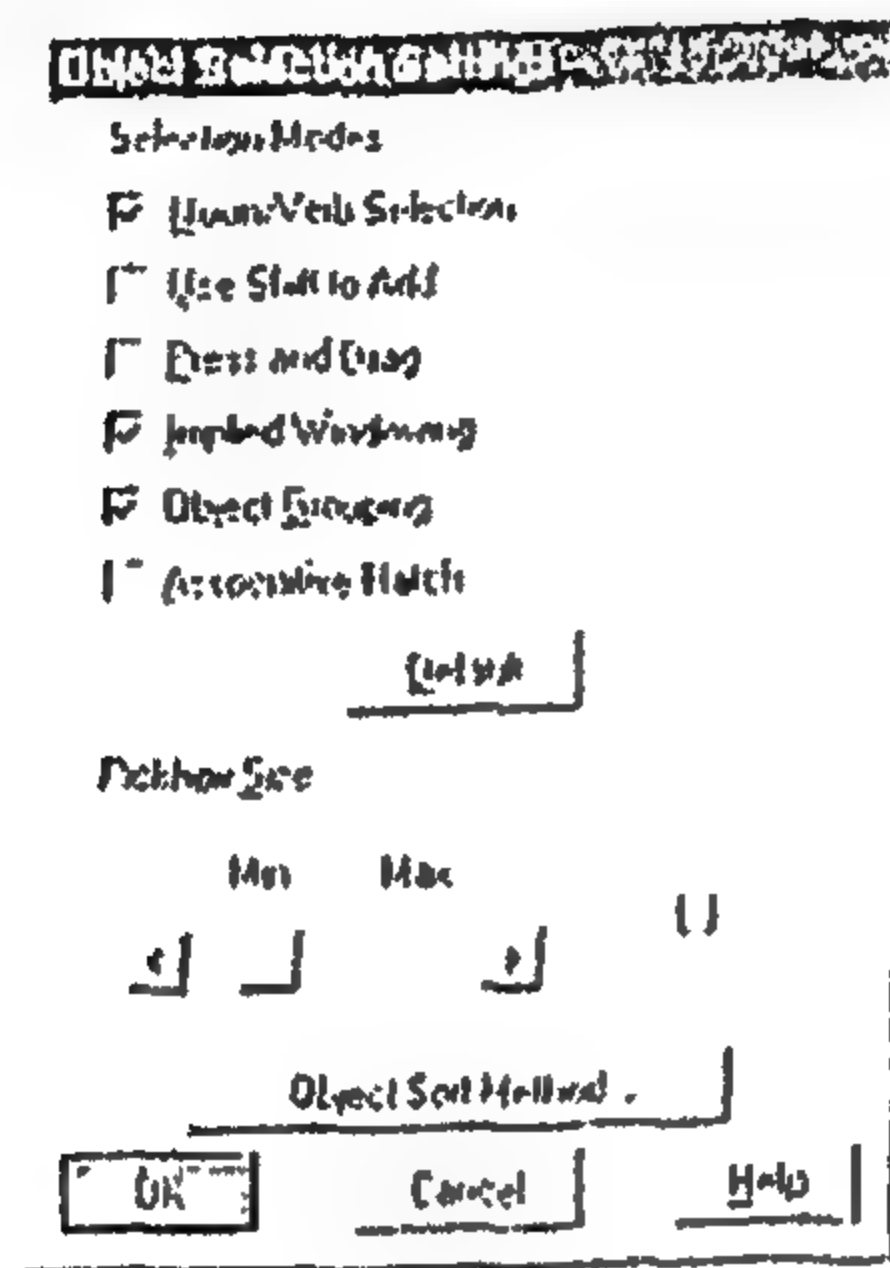 Object Selection Settings
Selection Modes
Noun/Verb Selection
Use Shift to Add
Press and Drag
Implied Windowing
Object Grouping
Associative Hatch
Default
Pickbox Size
Min Max
Object Sort Method
OK Cancel Help